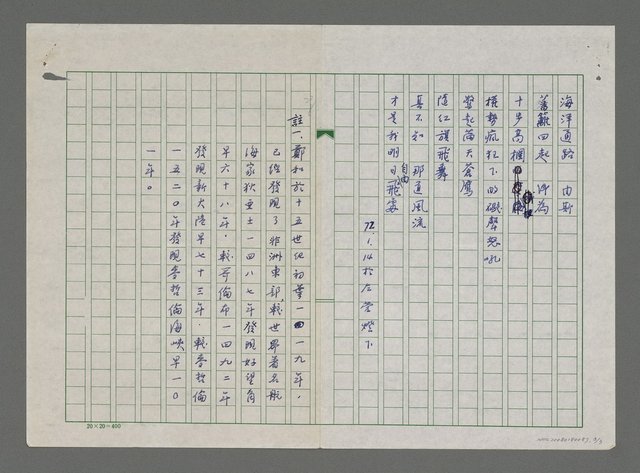 海洋通路 由斯
舊艱四起 浮為
十步高欄
橫勢瘋狂下的礮聲怒吼
驚起滿天蒼鷹
隨紅旗飛舞
真不知 那道風流
才是我明日自由飛處
72.1.14於左營燈下
註一、鄭和於十五世紀初葉一四一九年,
已經發現了非洲東部,較世界著名航
海家狄亞士一四八七年發現好望角
早六十八年,較哥倫布一四九二年
發現新大陸早七十三年,較麥哲倫
一五二〇年發現麥哲倫海峽早一〇
一年。
20×20=400